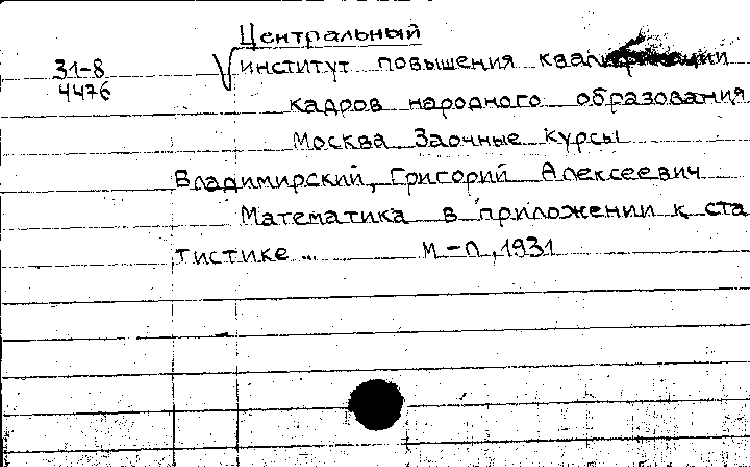 Центральный
31-8 институт повышения квалификации
4476 кадров народного образования
Москва Заочные курсы
Владимирский, Григорий Алексеевич
Математика в приложении к ста
тистике... М-Л, 1931